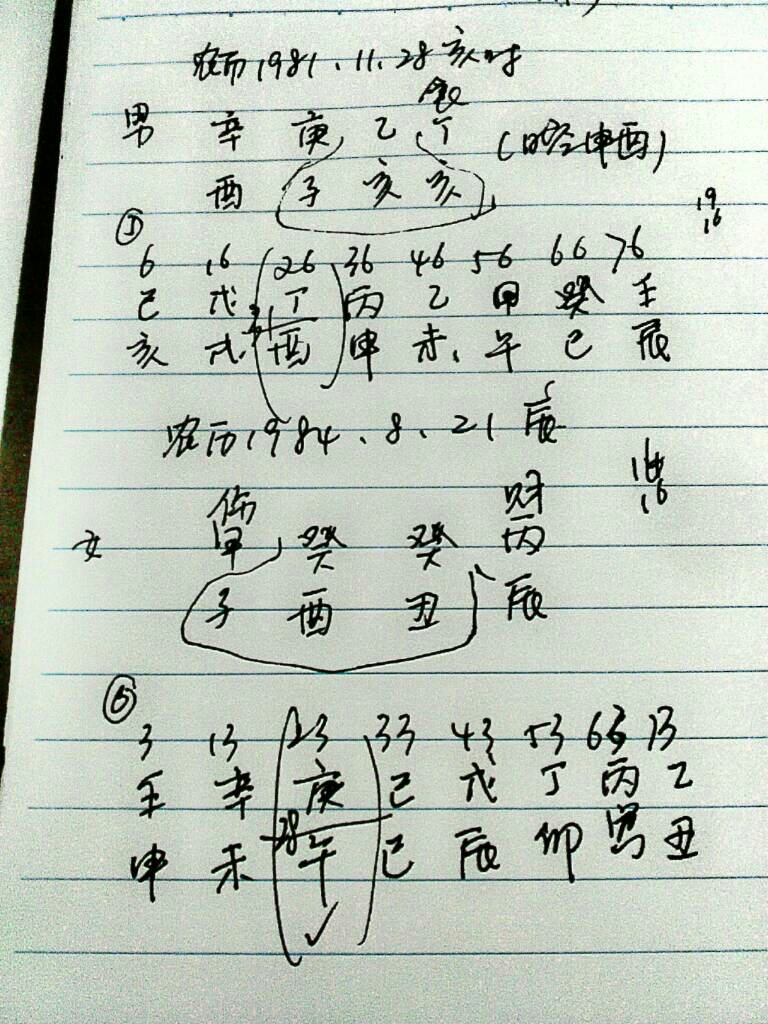 农历1981、11、28亥时
食
男 辛 庚 乙 丁 (时空申酉)
酉 子 亥 亥
19
16
①
6 16 26 36 46 56 66 76
己 戊 丁 丙 乙 甲 癸 壬
31
亥 戌 酉 申 未、午 巳 辰
农历1984、8、21辰
伤 财
16
女 甲 癸 癸 丙
子 酉 丑 辰
⑥
3 13 23 33 43 53 63 73
壬 辛 庚 己 戊 丁 丙 乙
28
申 未 午 巳 辰 卯 寅 丑